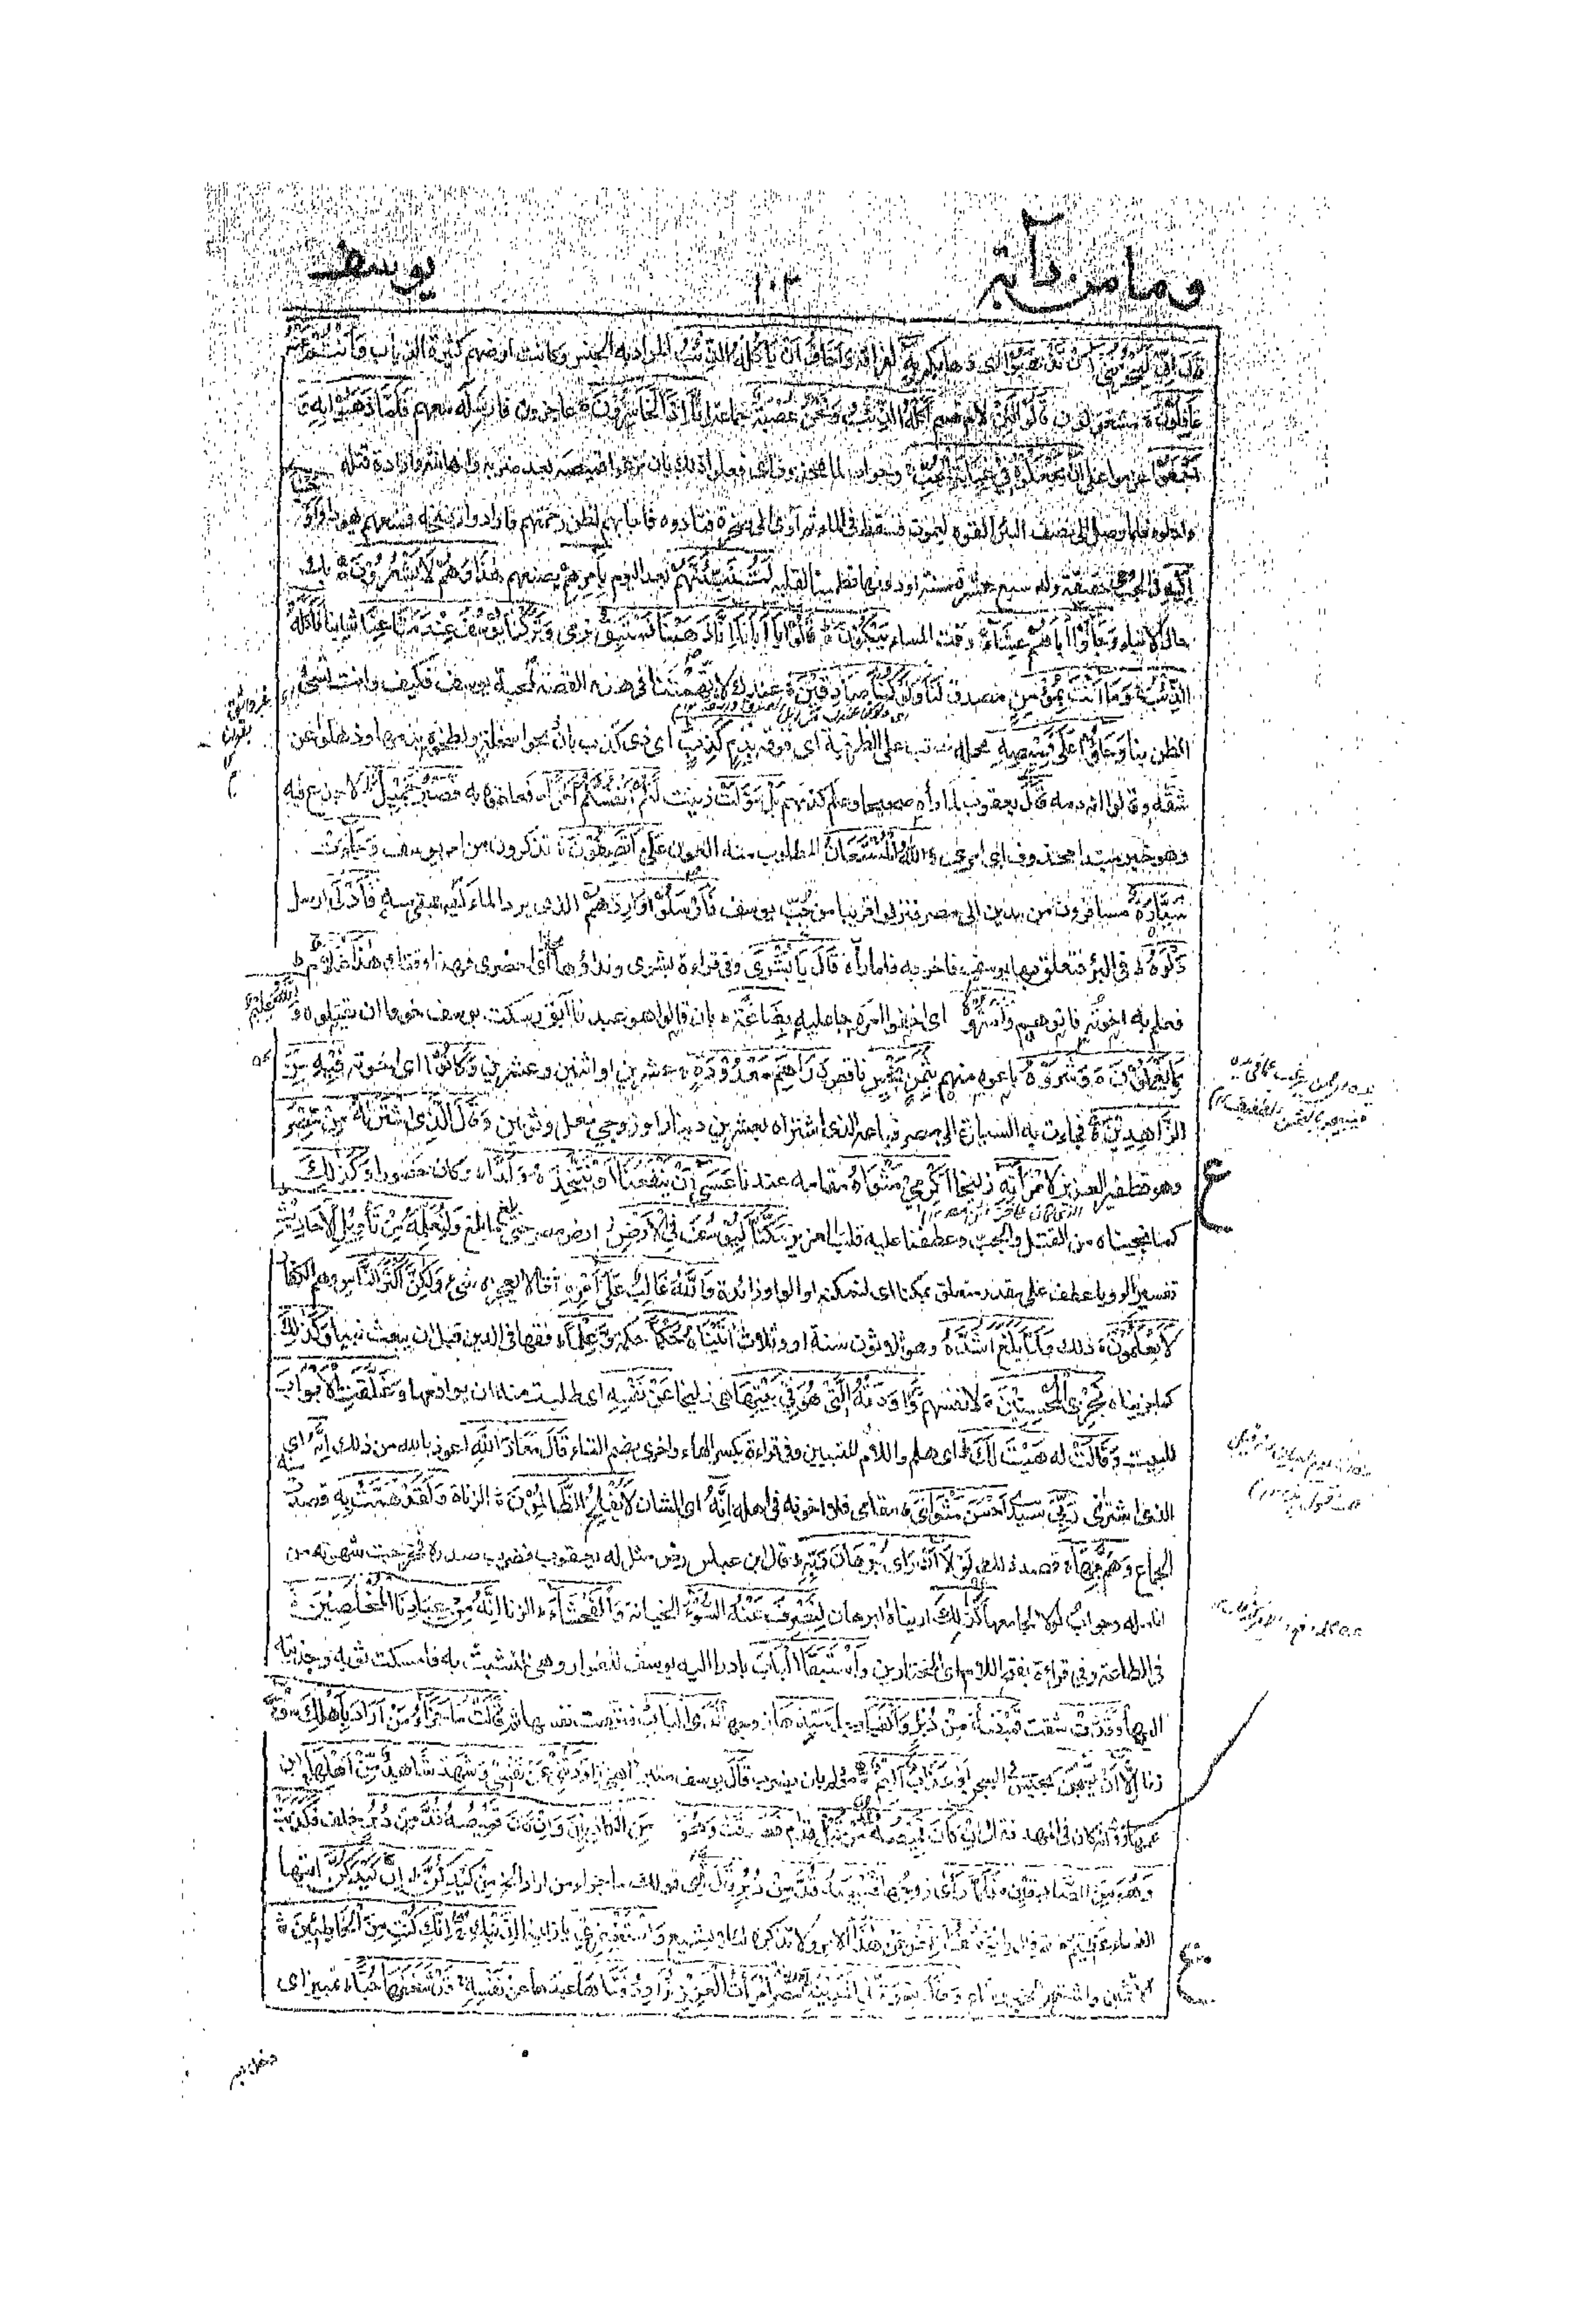 وما من دآبة
١٠٢
يوسف
قَالَ اِنِّي لَيَحْزُنُنِي اَنْ تَذْهَبُوْا اى ذهابكم بِهٖ لفراقه وَاَخَافُ اَنْ يَّأْكُلَهُ الذِّئْبُ المراد به الجنس وكانت ارضهم كثيرة الذياب وَاَنْتُمْ عَنْهُ
غَافِلُوْنَ ۝ مشغولون قَالُوْا لَئِنْ لام قسم اَكَلَهُ الذِّئْبُ وَنَحْنُ عُصْبَةٌ جماعة اِنَّا اِذًا لَّخَاسِرُوْنَ ۝ عاجزون فارسله معهم فَلَمَّا ذَهَبُوْا بِهٖ وَ
اَجْمَعُوْا عزموا على اَنْ يَّجْعَلُوْهُ فِيْ غَيَابَةِ الْجُبِّ وجواب لما محذوف اى فعلوا ذلك بان نزعوا قميصه بعد ضربه واهانته وارادة قتله
وادلوه فلما وصل الى نصف البئر القوه ليموت فسقط فى الماء ثم آوى الى صخرة فنادوه فاجابهم لظن رحمتهم فارادوا رضخه فمنعهم يهودا وَاَوْحَيْنَا
اِلَيْهِ فى الجب حقيقة وله سبع عشرة سنة او دونها تطمينا لقلبه لَتُنَبِّئَنَّهُمْ بعد اليوم بِاَمْرِهِمْ بصنعهم هٰذَا وَهُمْ لَا يَشْعُرُوْنَ ۝ بك
حال الانباء وَجَآؤُوْا اَبَاهُمْ عِشَآءً وقت المساء يَبْكُوْنَ ۝ قَالُوْا يَا اَبَانَا اِنَّا ذَهَبْنَا نَسْتَبِقُ نرمى وَتَرَكْنَا يُوْسُفَ عِنْدَ مَتَاعِنَا ثيابنا فَاَكَلَهُ
الذِّئْبُ وَمَا اَنْتَ بِمُؤْمِنٍ بمصدق لَّنَا وَلَوْ كُنَّا صَادِقِيْنَ ۝ عندك لاتهمتنا فى هذه القصة لمحبة يوسف فكيف وانت تسئ
الظن بنا وَجَآؤُوْا عَلٰى قَمِيْصِهٖ محله نصب على الظرفية اى فوقه بِدَمٍ كَذِبٍ اى ذى كذب بان ذبحوا سخلة ولطخوه بدمها وذهلوا عن
شقه وقالوا انه دمه قَالَ يعقوب لما رأه صحيحا وعلم كذبهم بَلْ سَوَّلَتْ زينت لَكُمْ اَنْفُسُكُمْ اَمْرًا ففعلتموه به فَصَبْرٌ جَمِيْلٌ لا جزع فيه
وهو خبر مبتدا محذوف اى امرى وَاللّٰهُ الْمُسْتَعَانُ المطلوب منه العون عَلٰى مَا تَصِفُوْنَ ۝ تذكرون من امر يوسف وَجَآءَتْ
سَيَّارَةٌ مسافرون من مدين الى مصر فنزلوا قريبا من جب يوسف فَاَرْسَلُوْا وَارِدَهُمْ الذى يرد الماء ليستقى منه فَاَدْلٰى ارسل
دَلْوَهٗ فى البئر فتعلق بها يوسف فاخرجه فلما رآه قَالَ يَا بُشْرٰى وفى قراءة بشرى ونداؤها مجاز اى احضرى فهذا وقتك هٰذَا غُلَامٌ
فعلم به اخوته فاتوهم وَاَسَرُّوْهُ اى اخفوا امره جاعليه بِضَاعَةً بان قالوا هو عبدنا آبق وسكت يوسف خوفا ان يقتلوه وَاللّٰهُ عَلِيْمٌ
بِمَا يَعْمَلُوْنَ ۝ وَشَرَوْهُ باعوه منهم بِثَمَنٍ بَخْسٍ ناقص دَرَاهِمَ مَعْدُوْدَةٍ عشرين او اثنين وعشرين وَكَانُوْا اى اخوته فِيْهِ مِنَ
الزَّاهِدِيْنَ ۝ فجاءت به السيارة الى مصر فباعه الذى اشتراه بعشرين دينارا وزوجى نعل وثوبين وَقَالَ الَّذِى اشْتَرَاهُ مِنْ مِّصْرَ
وهو قطفير العزيز لِامْرَاَتِهٖ زليخا اَكْرِمِيْ مَثْوَاهُ مقامه عندنا عَسٰى اَنْ يَّنْفَعَنَا اَوْ نَتَّخِذَهٗ وَلَدًا وكان حصورا وَكَذٰلِكَ
كما نجيناه من القتل والجب وعطفنا عليه قلب العزيز مَكَّنَّا لِيُوْسُفَ فِي الْاَرْضِ ارض مصر حتى بلغ ما بلغ وَلِنُعَلِّمَهٗ مِنْ تَأْوِيْلِ الْاَحَادِيْثِ
تفسير الرؤيا عطف على مقدر متعلق بمكنا اى لنمكنه او الواو زائدة وَاللّٰهُ غَالِبٌ عَلٰى اَمْرِهٖ تعالى لا يعجزه شئ وَلٰكِنَّ اَكْثَرَ النَّاسِ وهم الكفار
لَا يَعْلَمُوْنَ ۝ ذلك وَلَمَّا بَلَغَ اَشُدَّهٗ وهو ثلاثون سنة او وثلاث اٰتَيْنَاهُ حُكْمًا حكمة وَّعِلْمًا فقها فى الدين قبل ان يبعث نبيا وَكَذٰلِكَ
كما جزيناه نَجْزِى الْمُحْسِنِيْنَ ۝ لانفسهم وَرَاوَدَتْهُ الَّتِيْ هُوَ فِيْ بَيْتِهَا هى زليخا عَنْ نَفْسِهٖ اى طلبت منه ان يواقعها وَغَلَّقَتِ الْاَبْوَابَ
للبيت وَقَالَتْ له هَيْتَ لَكَ اى هلم واللام للتبيين وفى قراءة بكسر الهاء واخرى بضم التاء قَالَ مَعَاذَ اللّٰهِ اعوذ بالله من ذلك اِنَّهٗ اى
الذى اشترانى رَبِّيْ سيدى اَحْسَنَ مَثْوَايَ مقامى فلا اخونه فى اهله اِنَّهٗ اى الشان لَا يُفْلِحُ الظَّالِمُوْنَ ۝ الزناة وَلَقَدْ هَمَّتْ بِهٖ قصدت منه
الجماع وَهَمَّ بِهَا قصد ذلك لَوْلَا اَنْ رَّاٰى بُرْهَانَ رَبِّهٖ قال ابن عباس رض مثل له يعقوب فضرب صدره فخرجت شهوته من
انامله وجواب لولا لجامعها كَذٰلِكَ اريناه البرهان لِنَصْرِفَ عَنْهُ السُّوْءَ الخيانة وَالْفَحْشَآءَ الزنا اِنَّهٗ مِنْ عِبَادِنَا الْمُخْلَصِيْنَ ۝
فى الطاعة وفى قراءة بفتح اللام اى المختارين وَاسْتَبَقَا الْبَابَ بادرا اليه يوسف للفرار وهى للتشبث به فامسكت ثوبه وجذبته
اليها وَقَدَّتْ شقت قَمِيْصَهٗ مِنْ دُبُرٍ وَّاَلْفَيَا وجدا سَيِّدَهَا زوجها لَدَى الْبَابِ فنزهت نفسها ثم قَالَتْ مَا جَزَآءُ مَنْ اَرَادَ بِاَهْلِكَ سُوْٓءًا
زنا اِلَّا اَنْ يُّسْجَنَ يحبس فى السجن اَوْ عَذَابٌ اَلِيْمٌ ۝ مؤلم بان يضرب قَالَ يوسف متبرئا هِيَ رَاوَدَتْنِيْ عَنْ نَفْسِيْ وَشَهِدَ شَاهِدٌ مِّنْ اَهْلِهَا ابن
عمها روى انه كان فى المهد فقال اِنْ كَانَ قَمِيْصُهٗ قُدَّ مِنْ قُبُلٍ قدام فَصَدَقَتْ وَهُوَ مِنَ الْكَاذِبِيْنَ وَاِنْ كَانَ قَمِيْصُهٗ قُدَّ مِنْ دُبُرٍ خلف فَكَذَبَتْ
وَهُوَ مِنَ الصَّادِقِيْنَ ۝ فَلَمَّا رَاٰى زوجها قَمِيْصَهٗ قُدَّ مِنْ دُبُرٍ قَالَ اِنَّهٗ اى قولك ما جزاء من اراد الخ مِنْ كَيْدِكُنَّ اِنَّ كَيْدَكُنَّ ايتها
النساء عَظِيْمٌ ۝ ثم قال يا يُوْسُفُ اَعْرِضْ عَنْ هٰذَا الامر ولا تذكره لئلا يشيع وَاسْتَغْفِرِيْ يا زليخا لِذَنْبِكِ اِنَّكِ كُنْتِ مِنَ الْخَاطِئِيْنَ ۝
الآثمين واشتهر الخبر وشاع وَقَالَ نِسْوَةٌ فِى الْمَدِيْنَةِ مصر امْرَاَتُ الْعَزِيْزِ تُرَاوِدُ فَتَاهَا عبدها عَنْ نَفْسِهٖ قَدْ شَغَفَهَا حُبًّا تمييز اى
ع
ع
دخل حبه